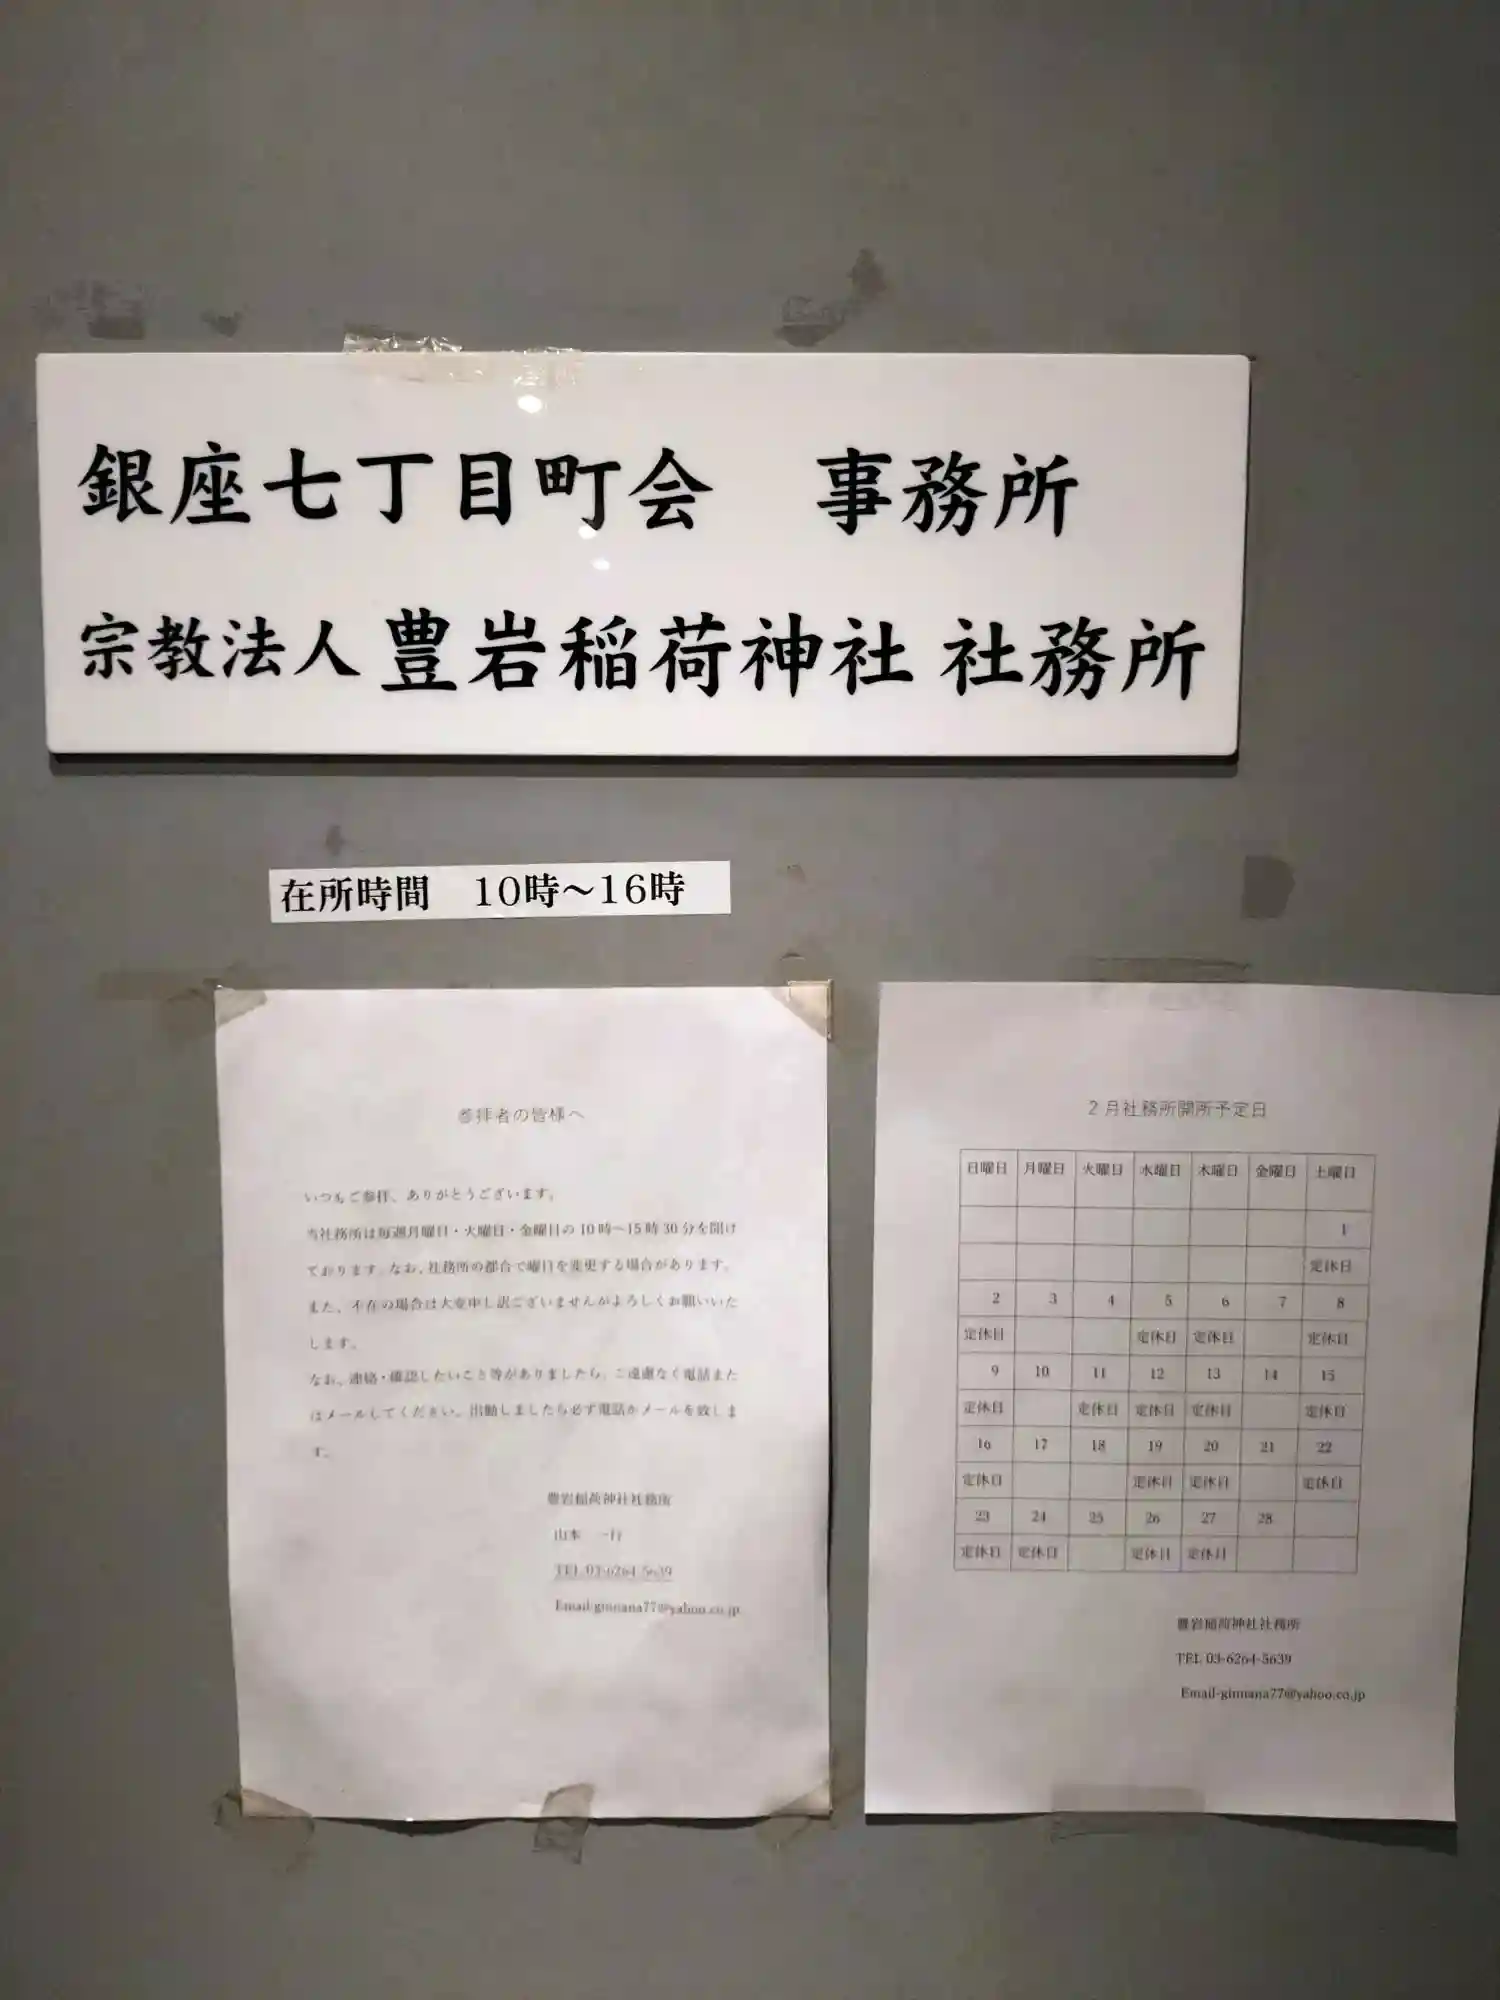 銀座七丁目町会　事務所
宗教法人 豊岩稲荷神社 社務所
在所時間　10時～16時
参拝者の皆様へ
いつもご参拝、ありがとうございます。
当社務所は毎週月曜日・火曜日・金曜日の10時～15時30分を開け
ております。なお、社務所の都合で曜日を変更する場合があります。
また、不在の場合は大変申し訳ございませんがよろしくお願いいた
します。
なお、連絡・確認したいこと等がありましたら、ご遠慮なく電話また
はメールしてください。出勤しましたら必ず電話かメールを致しま
す。
豊岩稲荷神社社務所
山本　一行
TEL 03-6264-5639
Email-ginnana77@yahoo.co.jp
2月社務所開所予定日
日曜日 月曜日 火曜日 水曜日 木曜日 金曜日 土曜日
1
定休日
2 3 4 5 6 7 8
定休日 定休日 定休日 定休日
9 10 11 12 13 14 15
定休日 定休日 定休日 定休日 定休日
16 17 18 19 20 21 22
定休日 定休日 定休日 定休日
23 24 25 26 27 28
定休日 定休日 定休日 定休日
豊岩稲荷神社社務所
TEL 03-6264-5639
Email-ginnana77@yahoo.co.jp